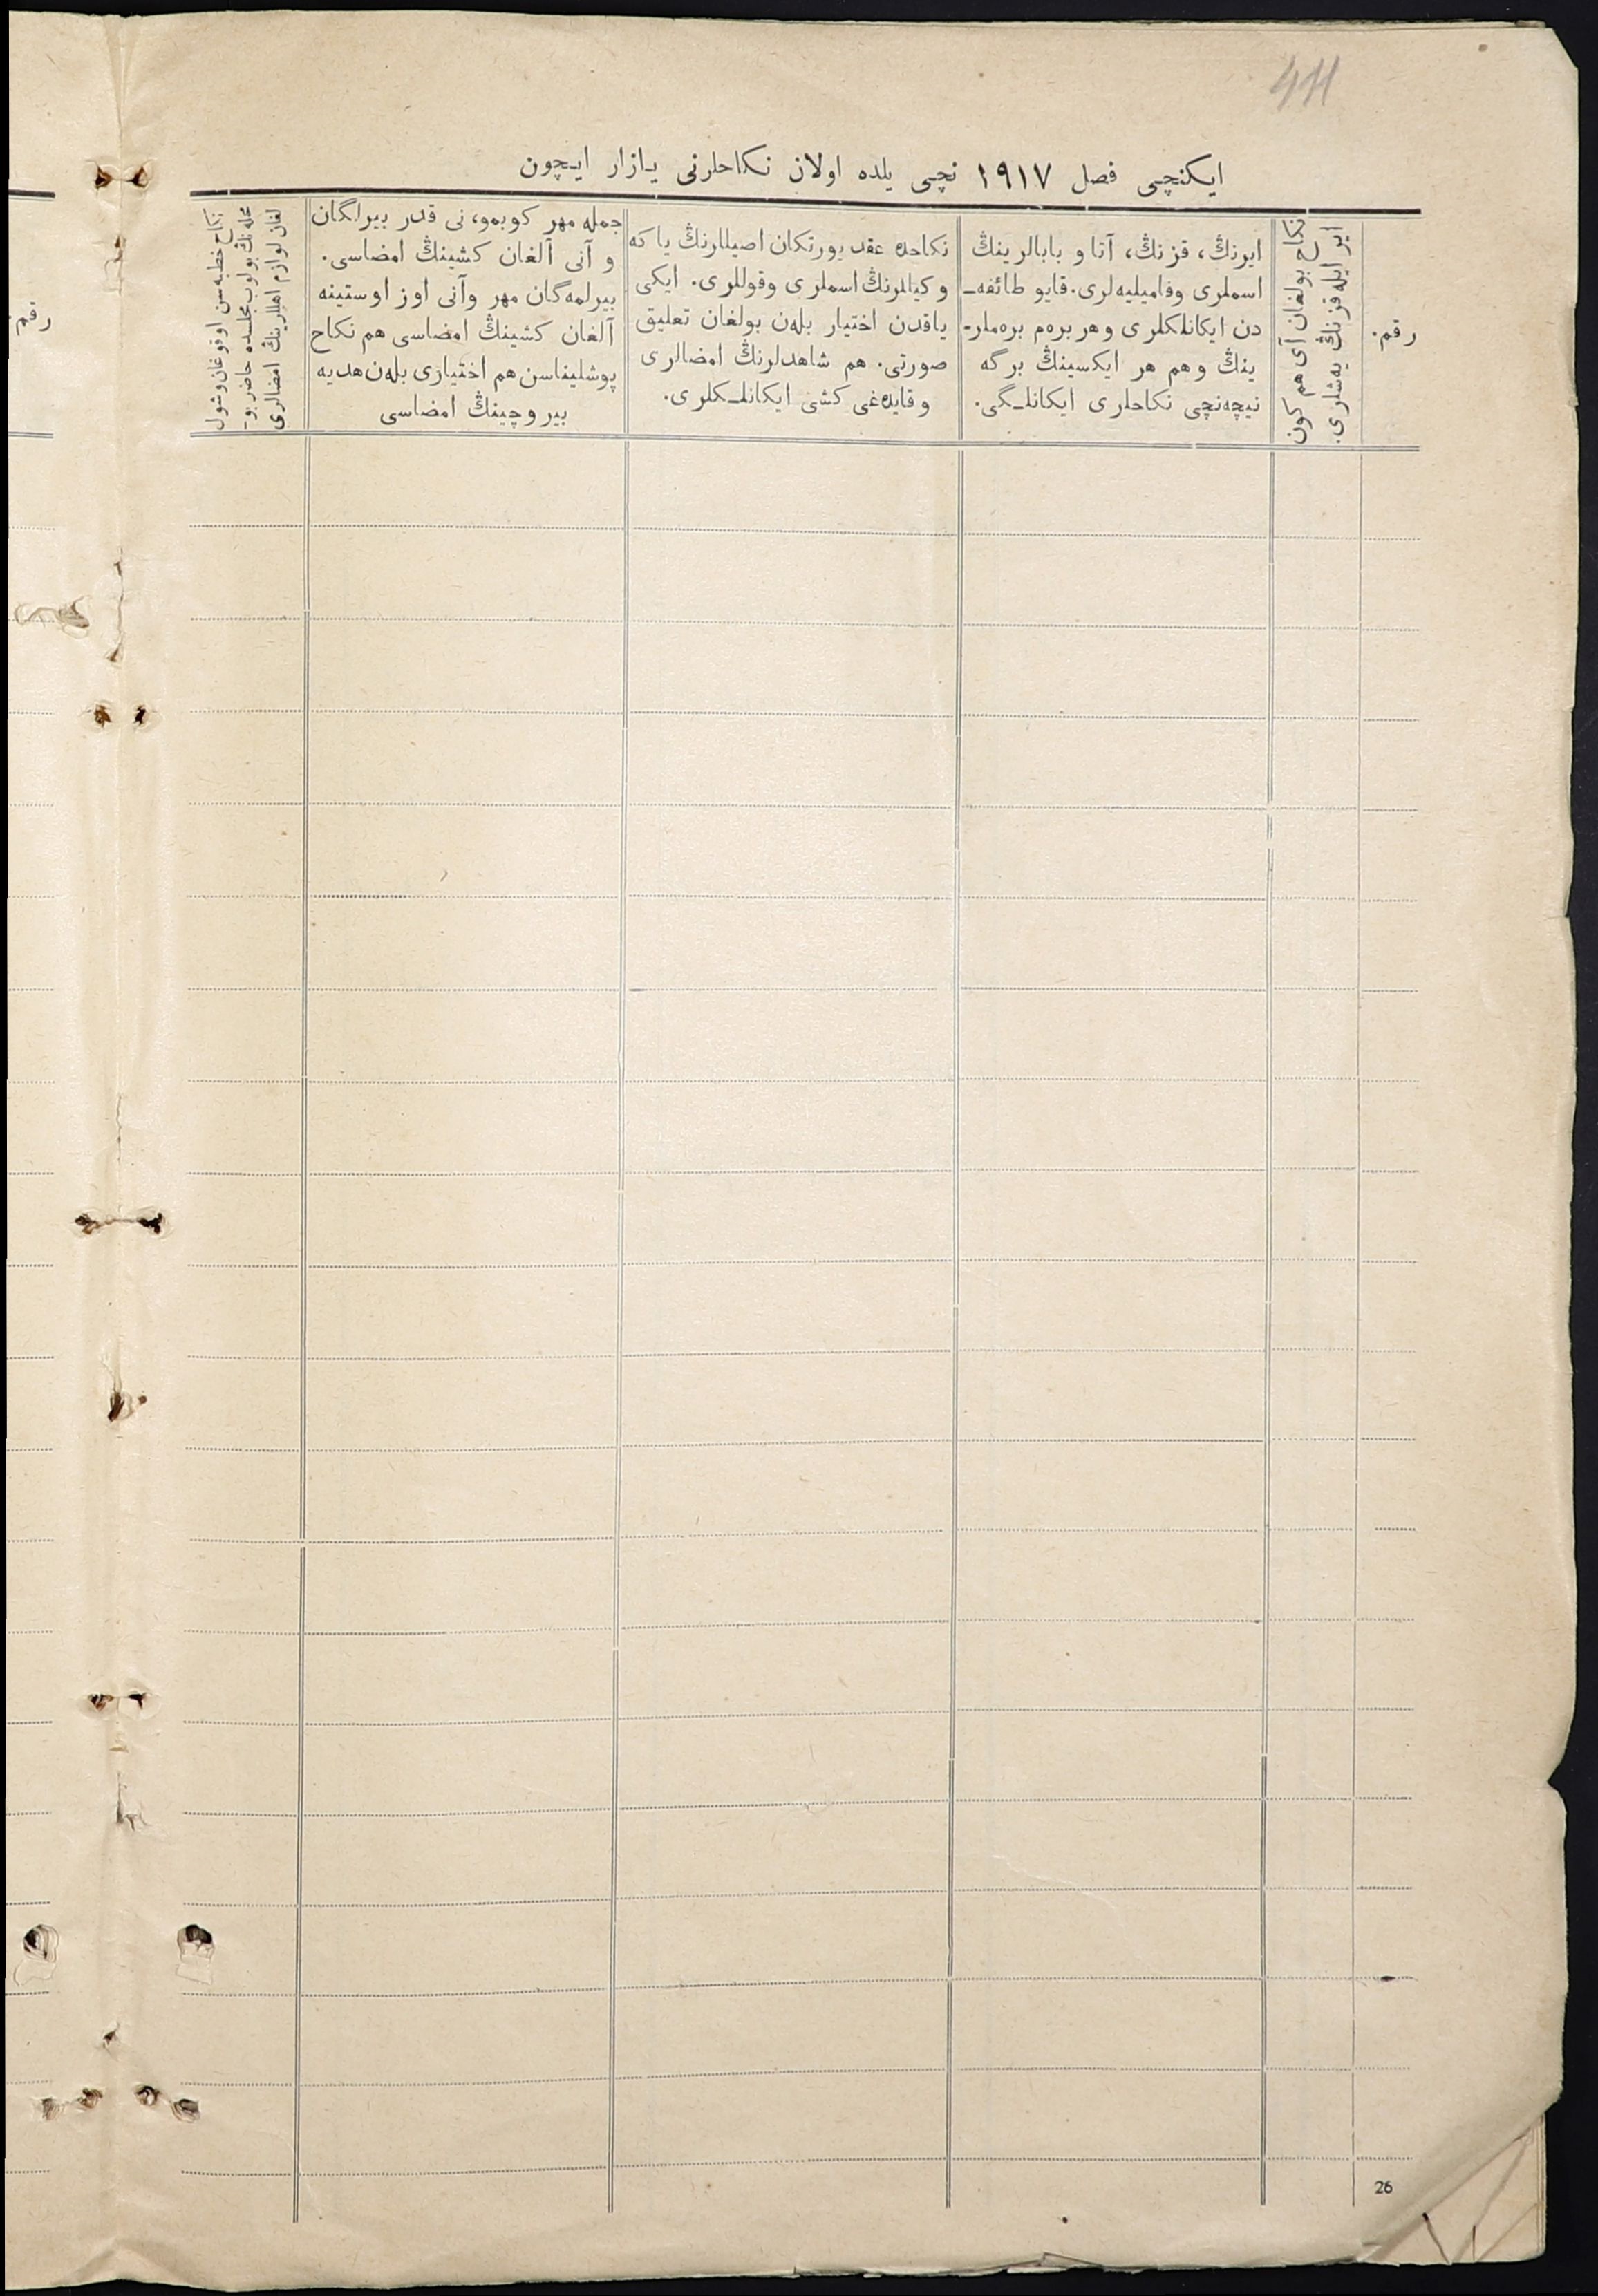 411
ایکنچی فصل ١٩١٧ نچی یلده اولان نکاحلرنی یازار ایچون
رقم.
نکاح بولغان آی هم کون
ایر ایله قزنڭ یه‌شلری.
ایرنڭ، قزنڭ، آتا و بابالرینڭ
اسملری وفامیلیه‌لری. قایو طائفه‌ـ
دن ایکانلکلری و هر بره‌م بره‌ملرـ
ینڭ و هم هر ایکسینڭ برگه
نیچه‌نچی نکاحلری ایکانلـگی.
نکاحده عقد یورتکان اصیللرنڭ یا که
وکیللرنڭ اسملری وقوللری. ایکی
یاقدن اختیار بله‌ن بولغان تعلیق
صورتی. هم شاهدلرنڭ امضالری
و قایده‌غی کشی ایکانلـکلری.
جمله مهر کوبمو، نی قدر بیرلگان
و آنی آلغان کشینڭ امضاسی.
بیرلمه‌گان مهر وآنی اوز اوستینه
آلغان کشینڭ امضاسی هم نکاح
پوشلیناسن هم اختیاری بله‌ن هدیه
بیروچینڭ امضاسی
نکاح خطبه‌سن اوقوغان وشول
محله‌نڭ بولوب مجلسده حاضر بوـ
لغان لوازم اهللرینڭ امضالری
رقم.
26